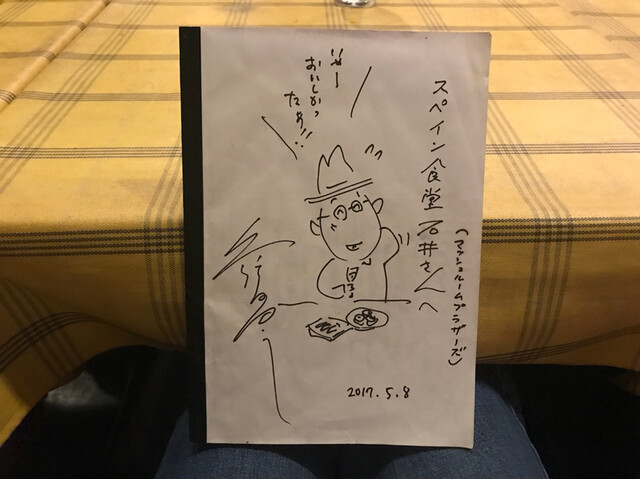 スペイン食堂 石井さんへ
(マッシュルームブラザーズ)
いやー
おいしかっ
たぁ!!
2017.5.8